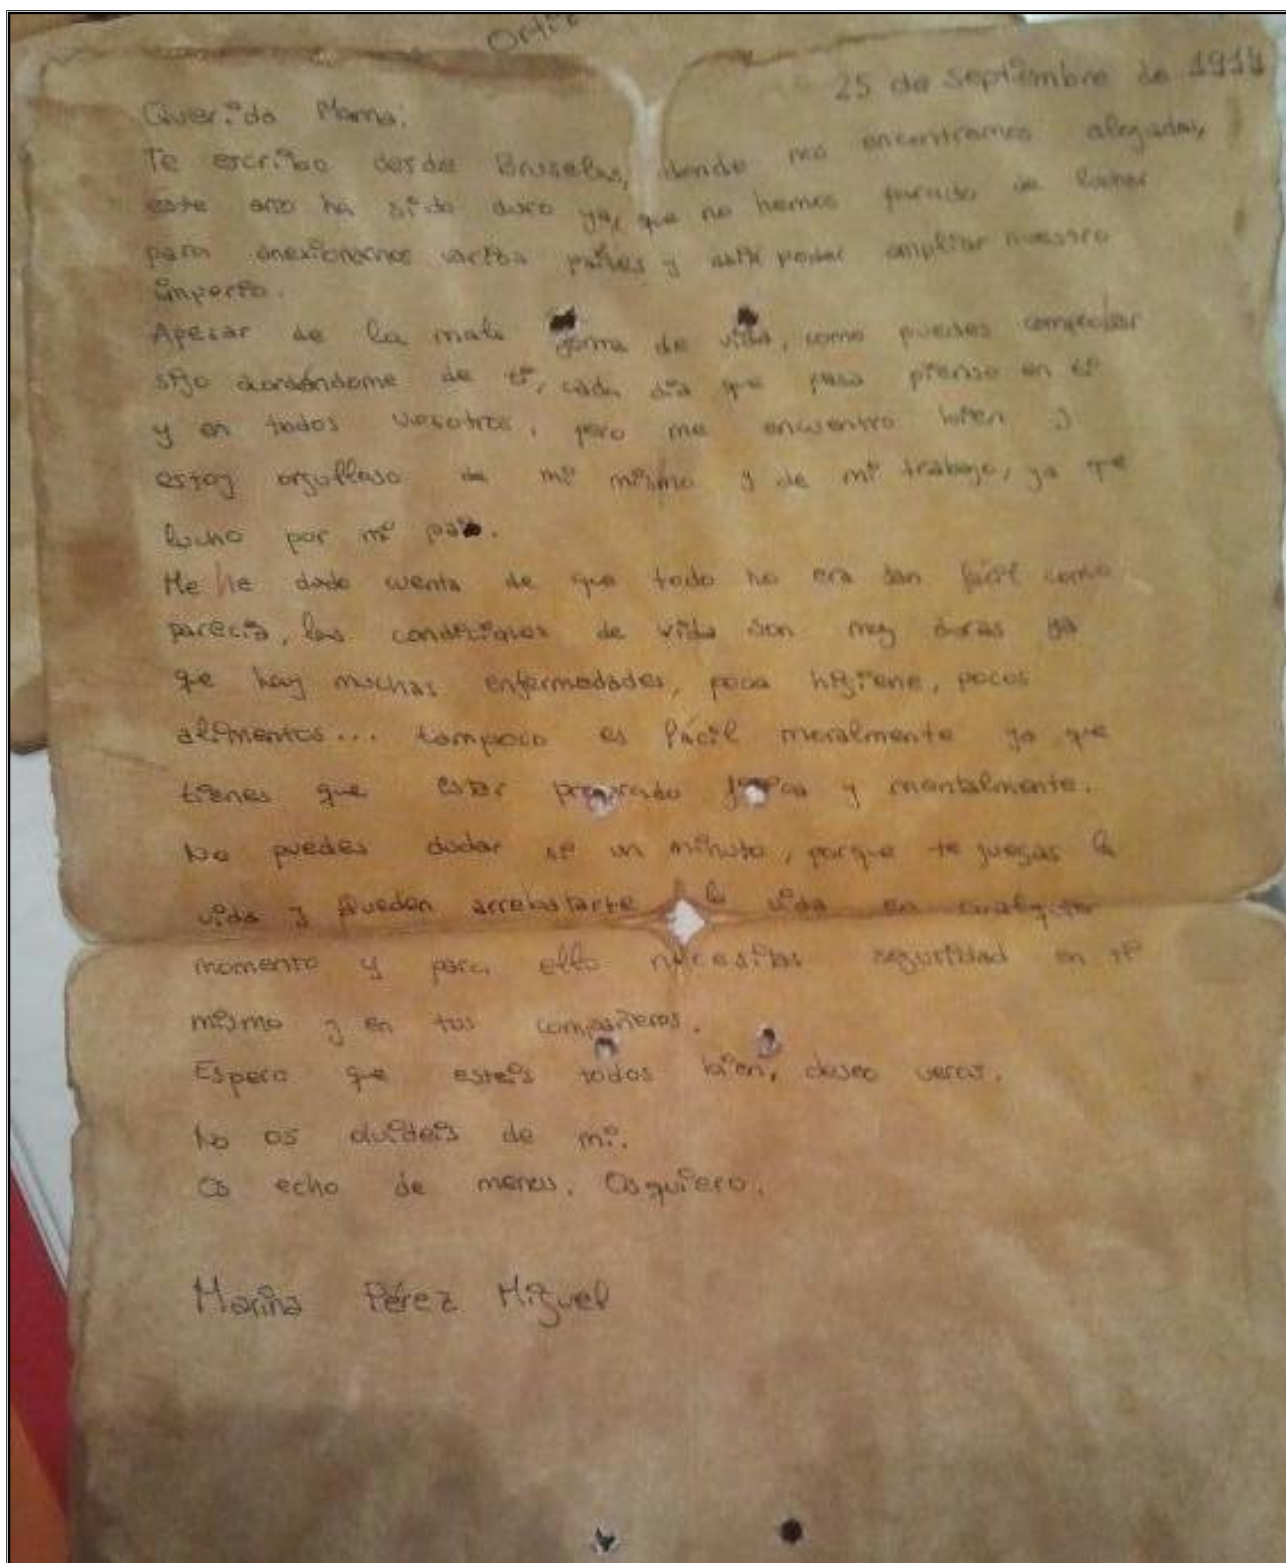 Ortiz
25 de septiembre de 1914
Querida Mama:
Te escribo desde Bruselas, donde nos encontramos alojados,
este año ha sido duro ya, que no hemos parado de luchar
para anexionarnos varios países y poder ampliar nuestro
imperio.
Apesar de la mala forma de vida, como puedes comprobar
sijo acordándome de ti, cada día que pasa pienso en ti
y en todos vosotros, pero me encuentro bien y
estoy orgulloso de mi mismo y de mi trabajo, ya que
lucho por mi país.
Me he dado cuenta de que todo no era tan fácil como
parecía, las condiciones de vida son muy duras ya
que hay muchas enfermedades, poca higiene, pocos
alimentos... tampoco es fácil moralmente ya que
tienes que estar preparado física y mentalmente.
No puedes dudar ni un minuto, porque te juegas la
vida y pueden arrebatarte la vida en cualquier
momento y para ello necesitas seguridad en ti
mismo y en tus compañeros.
Espero que esteis todos bien, deseo veros.
No os olvideis de mi.
Os echo de menos. Os quiero.
Marina Pérez Miguel